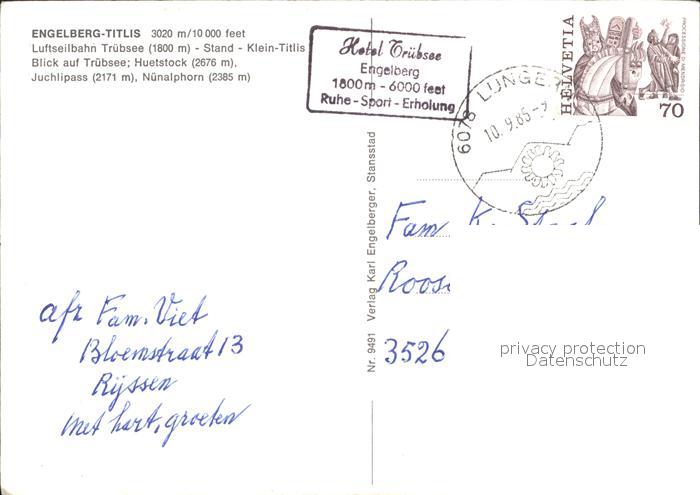 ENGELBERG-TITLIS 3020 m/10 000 feet
Luftseilbahn Trübsee (1800 m) - Stand - Klein-Titlis
Blick auf Trübsee; Huetstock (2676 m),
Juchlipass (2171 m), Nünalphorn (2385 m)
Hotel Trübsee
Engelberg
1800 m - 6000 feet
Ruhe - Sport - Erholung
6078 LUNGE
10.9.85
HELVETIA
70
Nr. 9491 Verlag Karl Engelberger, Stansstad
Fam K.
Roos
3526
privacy protection
Datenschutz
afz Fam. Viet
Bloemstraat 13
Rijssen
met hart. groeten